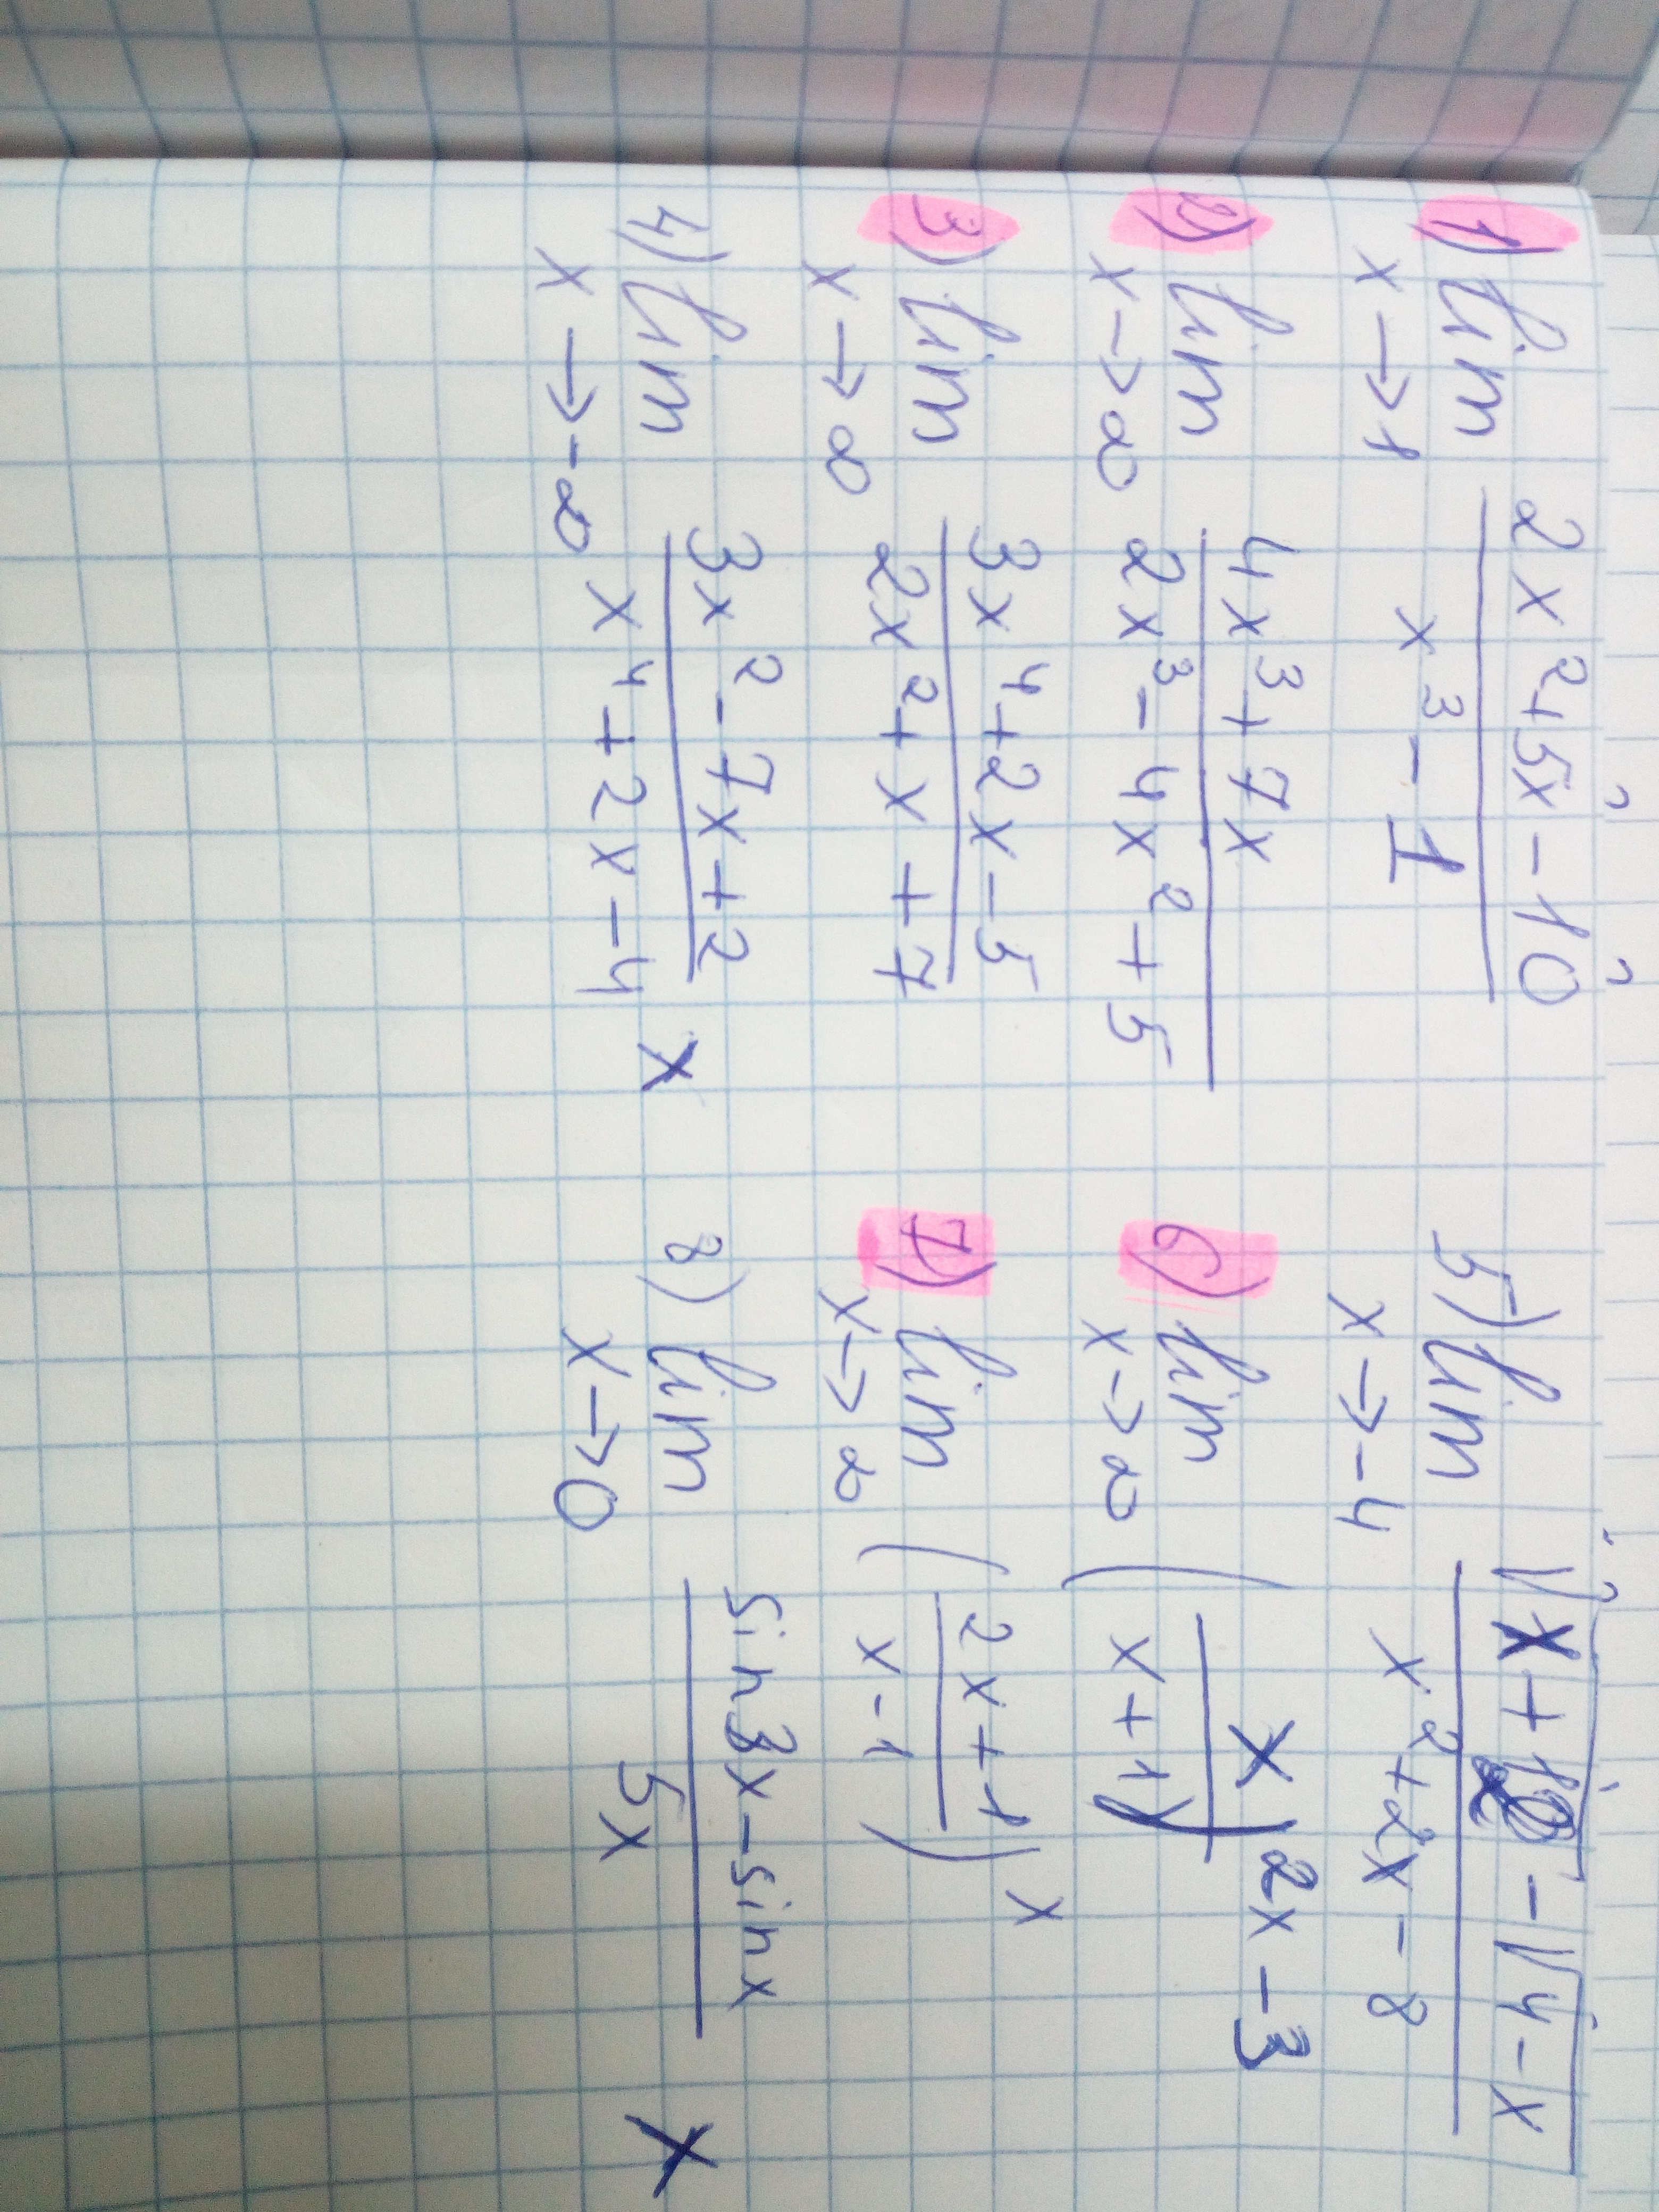 1) lim 2x²+5x-10
x→1 x³-1
2) lim 4x³+7x
x→∞ 2x³-4x²+5
3) lim 3x⁴+2x-5
x→∞ 2x²+x+7
4) lim 3x²-7x+2
x→-∞ x⁴+2x-4 x
5) lim -√4-x
x→-4 x²+2x-8
6) lim (x/(x+1))2x-3
x→∞
7) lim (2x+1/(x-1))x
x→∞
8) lim sin3x-sinx
x→0 5x x